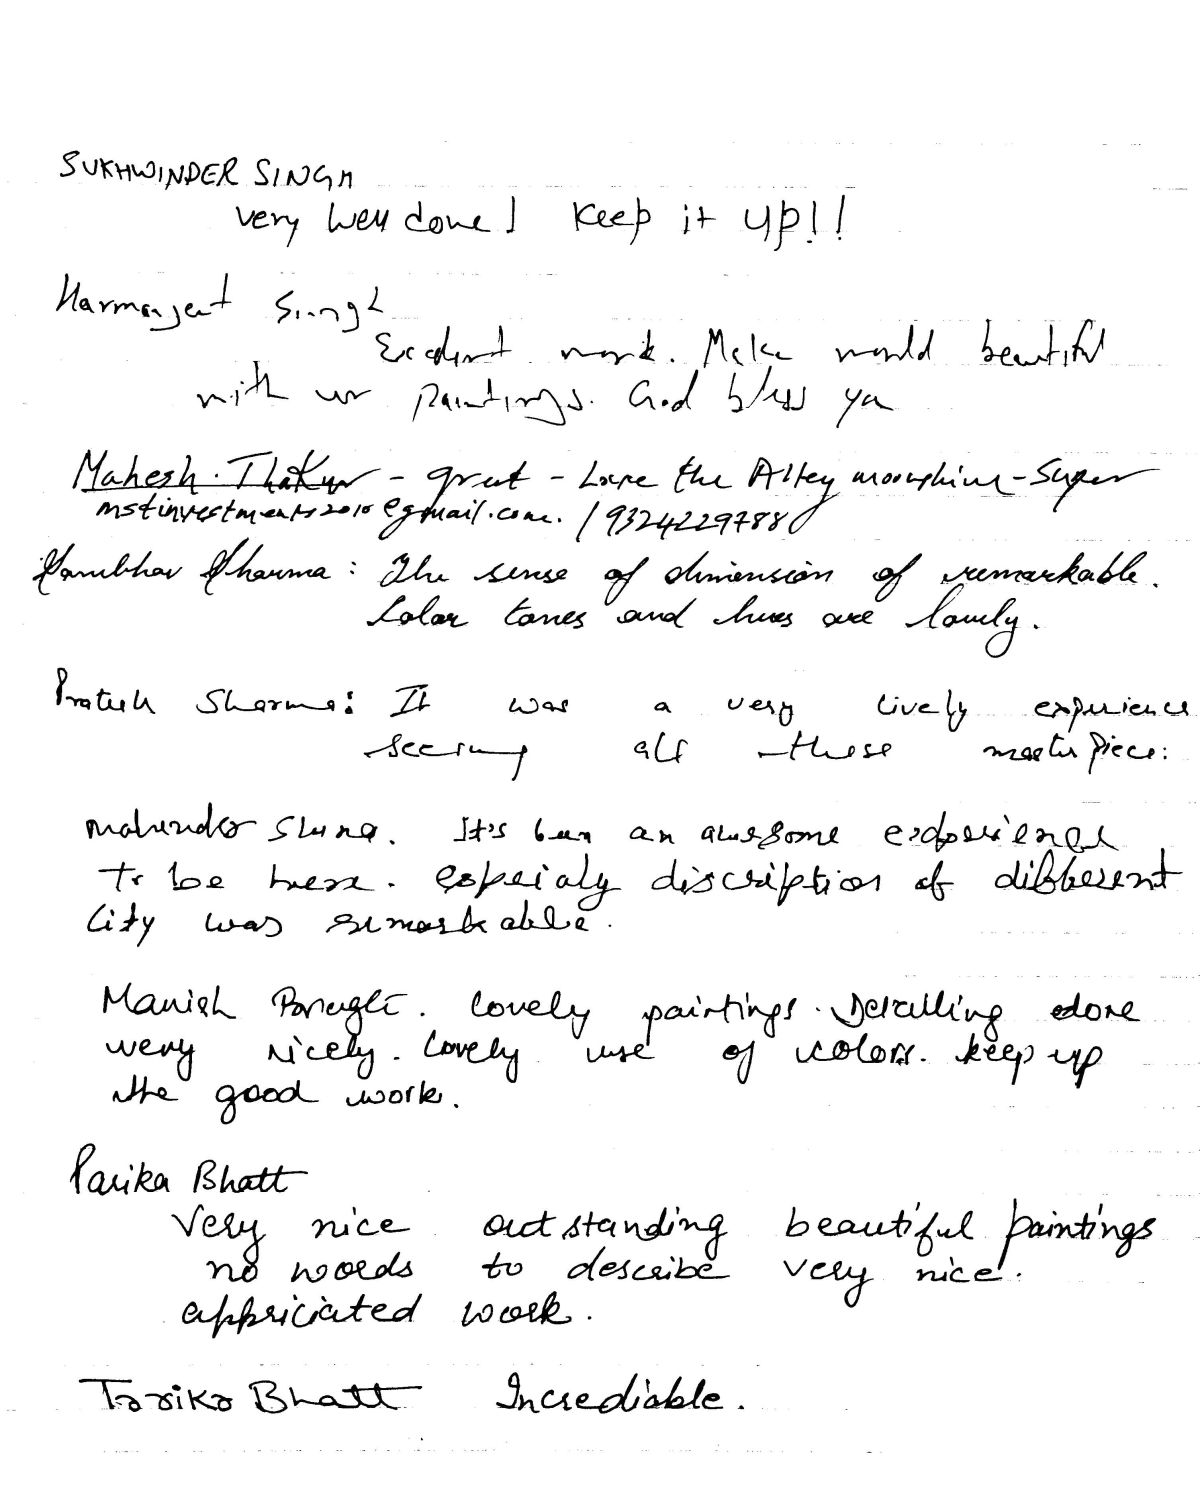 SUKHWINDER SINGH
very well done! Keep it up!!
Harmanjeet Singh
Excelent work. Make world beautiful
with ur paintings. God bless you
Mahesh. Thakur - great - Love the Alley moonshine - Super
mstinvestments2010@gmail.com. / 9324229788
Sharma : The sense of dimension of remarkable.
Color tones and hues are lovely.
Prateek Sharma: It was a very lively experience
seeing all these master piece:
It's been an awesome experience
to be here. espeialy discription of different
City was remarkable.
Manish. Lovely paintings. Detailing done
very nicely. Lovely use of colors. keep up
the good work.
Parika Bhatt
Very nice outstanding beautiful paintings
no words to describe very nice.
appriciated work.
Tarika Bhatt Incrediable.